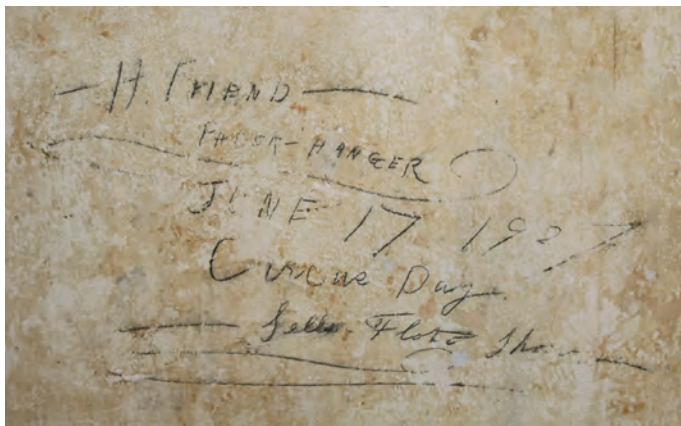 H. FRIEND
PAPER-HANGER
JUNE 17 1927
Circus Day
Sells-Floto Show